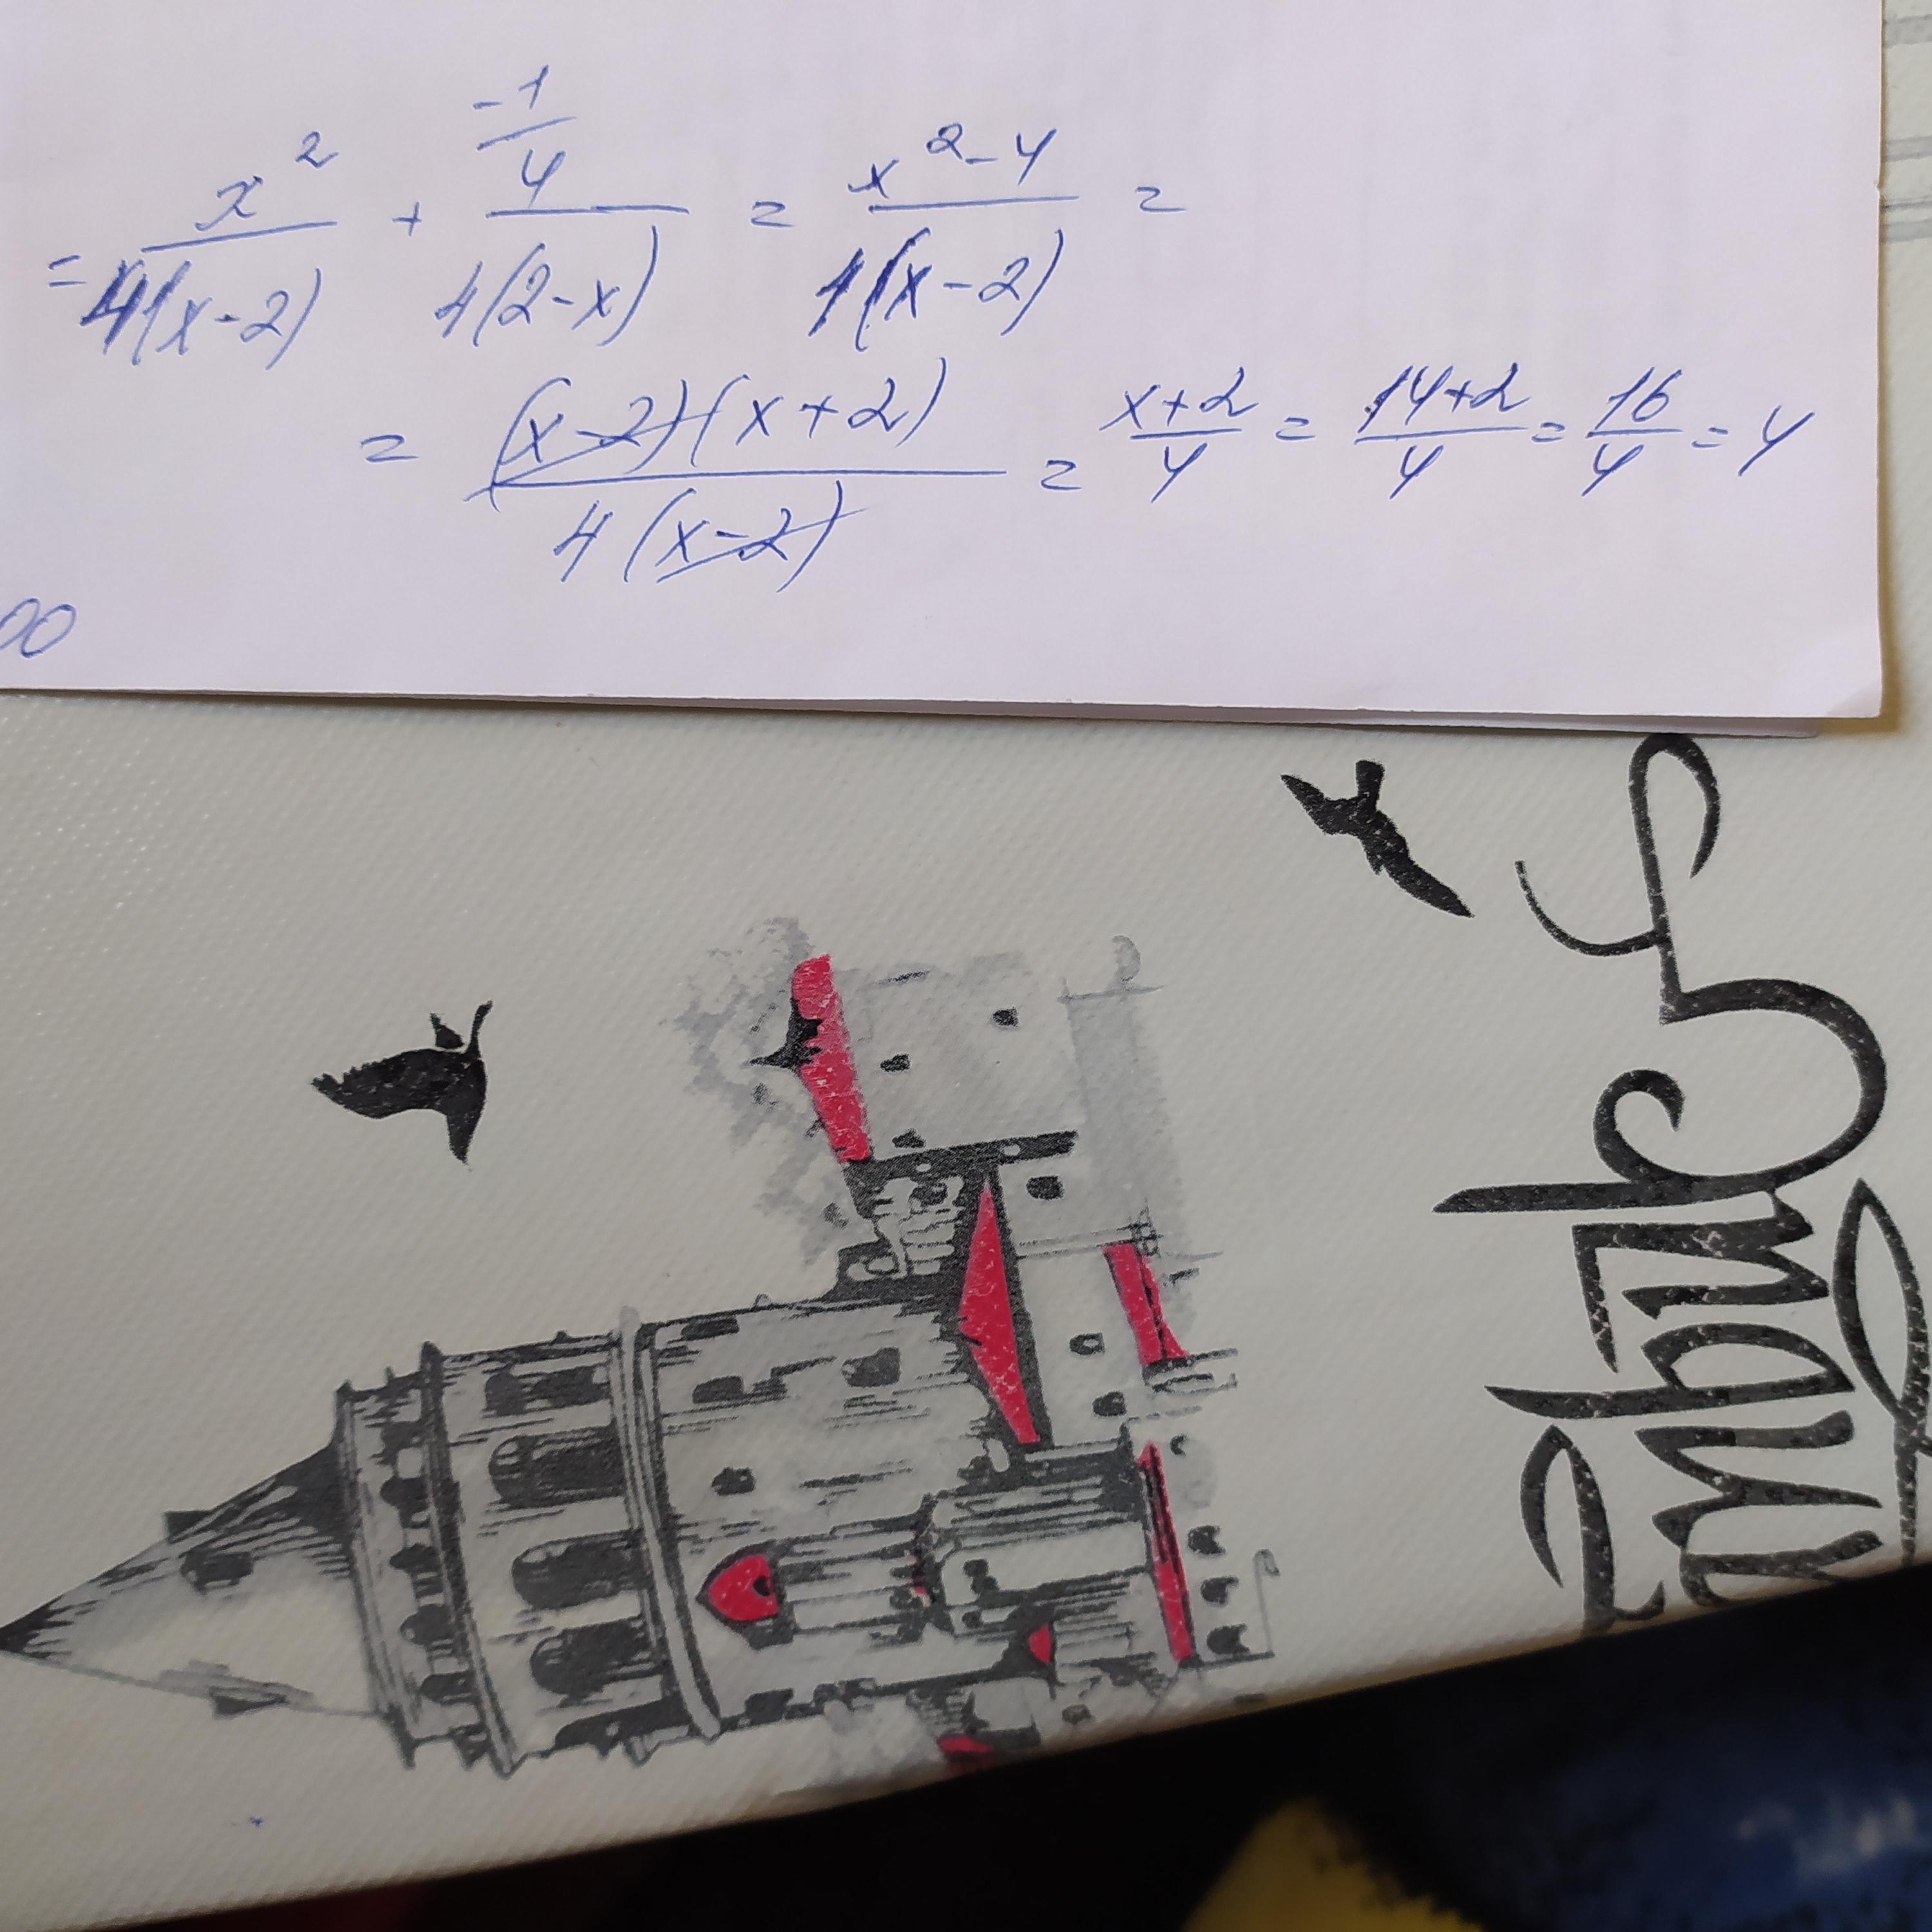 = x²/4(x-2) + -1/ 4/4(2-x) = x²-4/4(x-2) =
= (x-2)(x+2)/4(x-2) = x+2/4 = 14+2/4 = 16/4 = 4
00